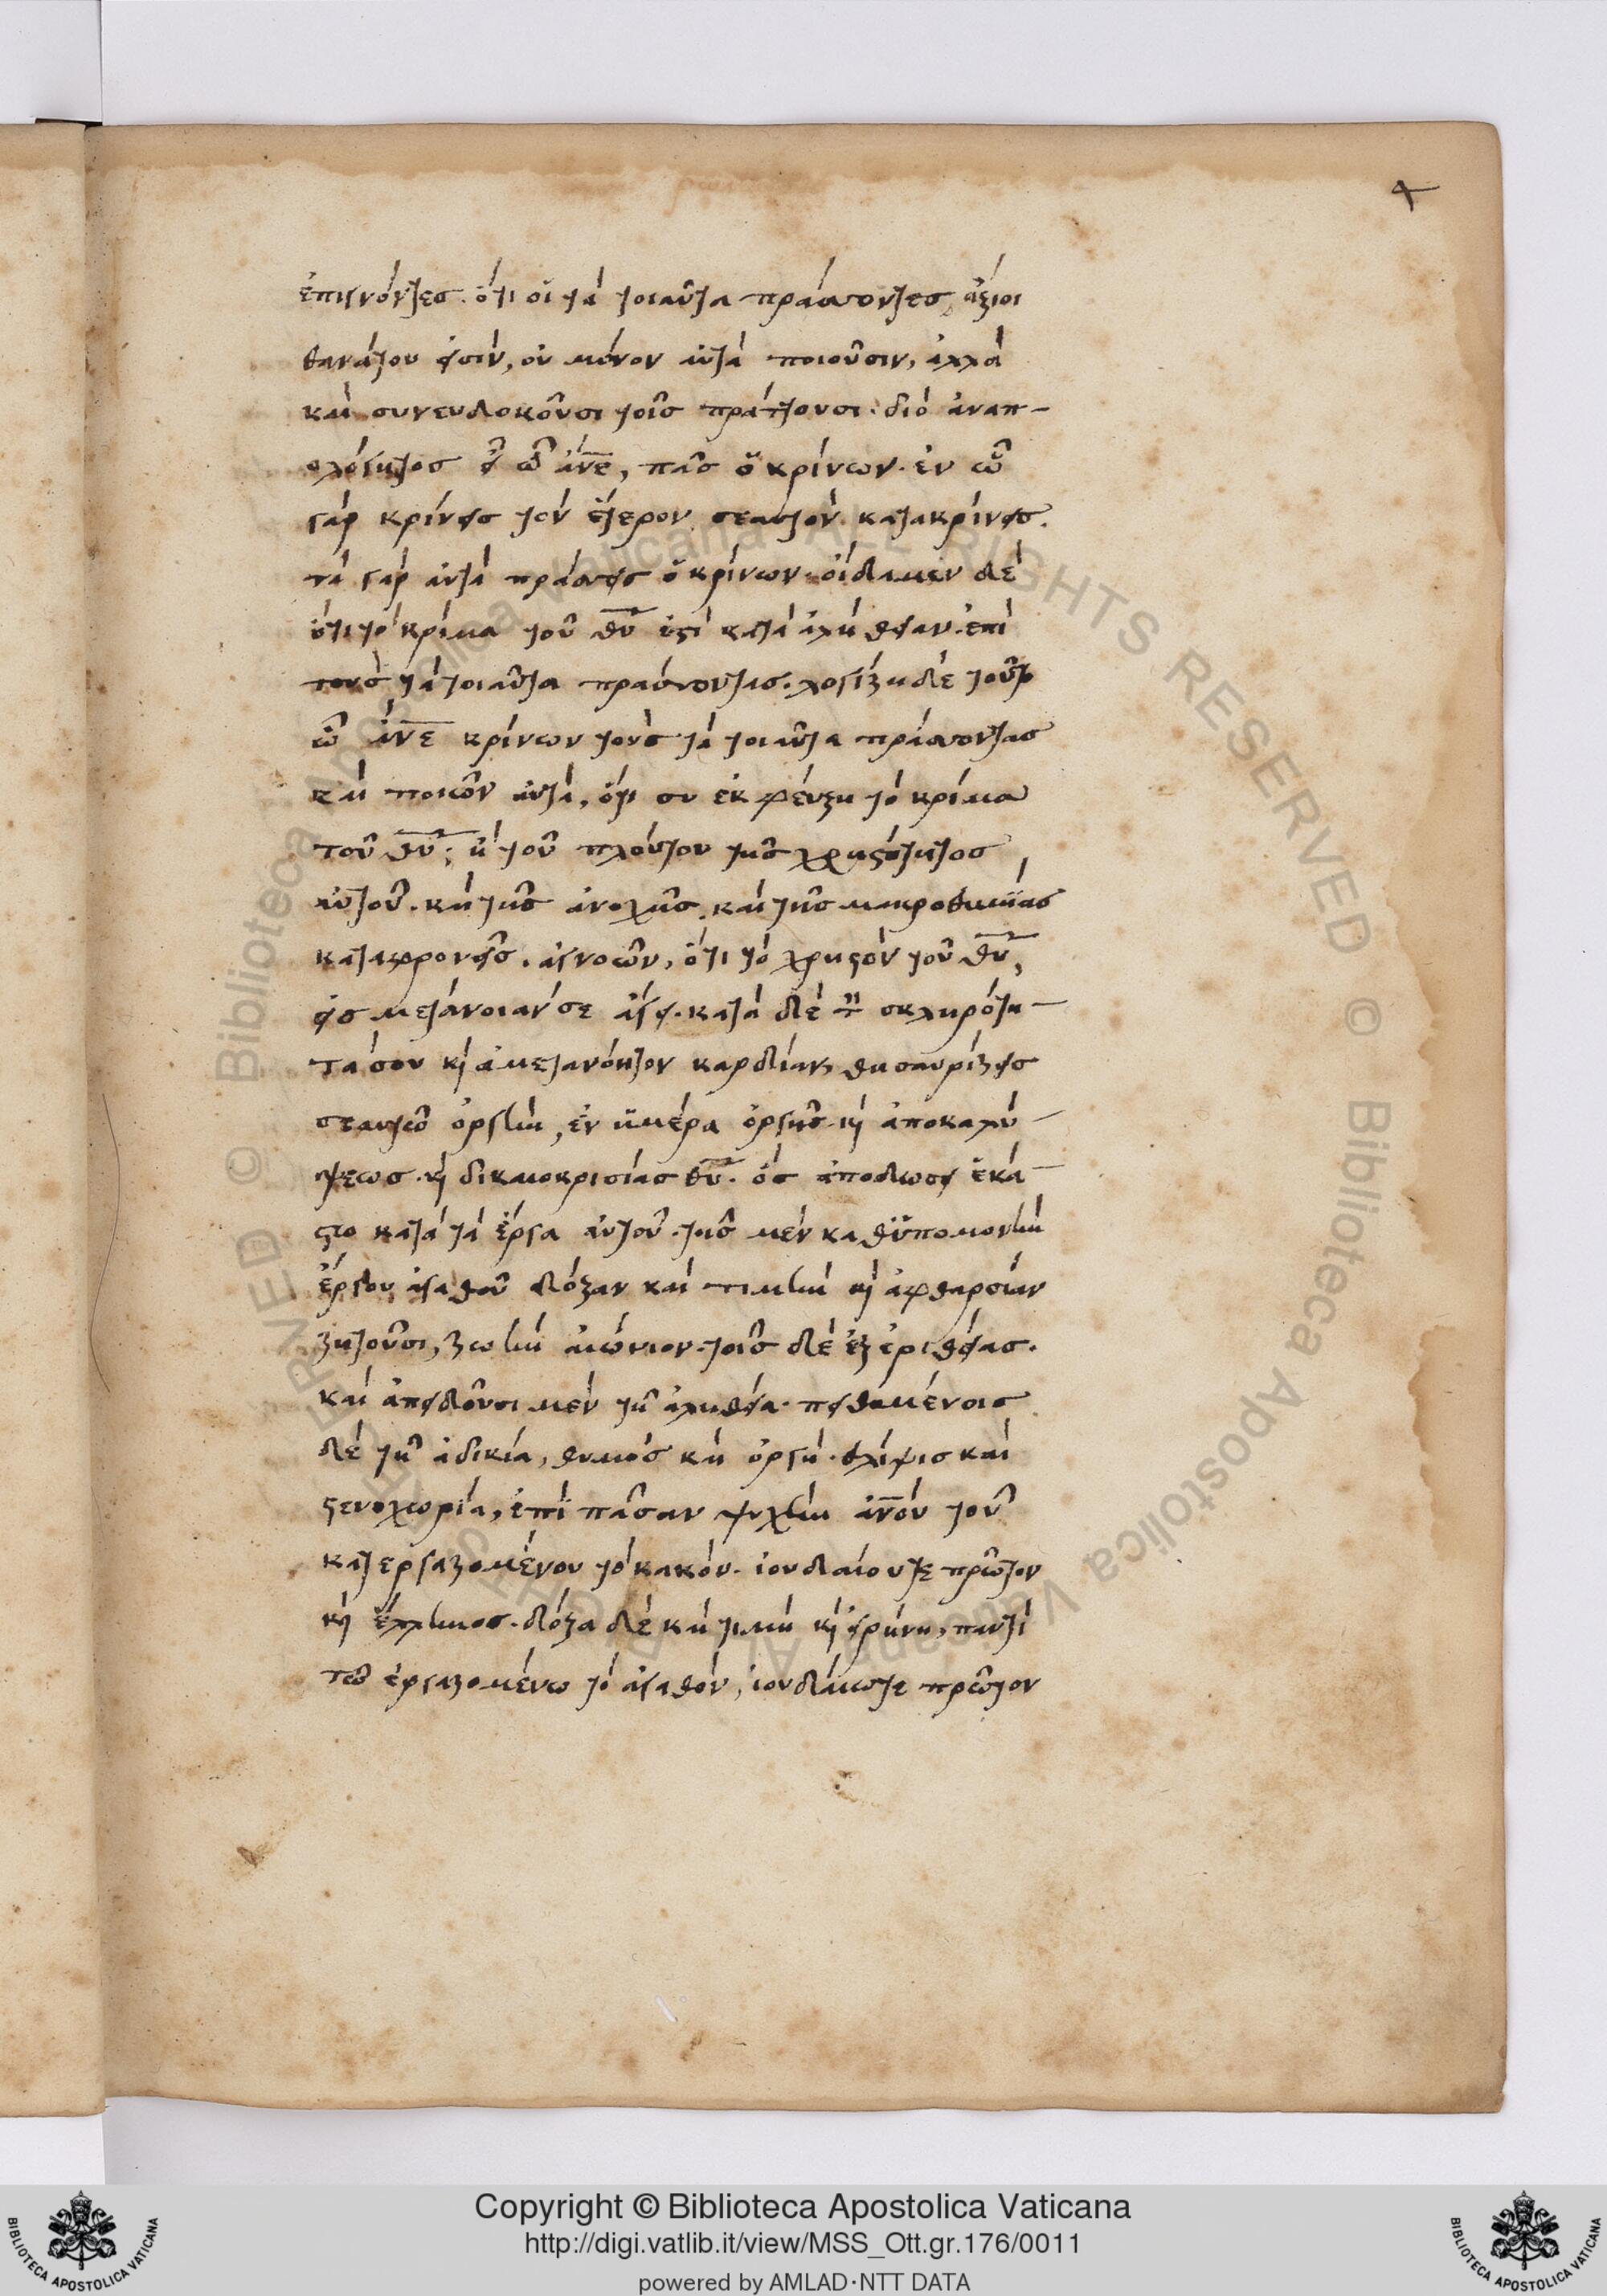 4
ἐπιγνόντες. ὅτι οἱ τὰ τοιαῦτα πράσσοντες, ἄξιοι
θανάτου εἰσὶν, οὐ μόνον αὐτὰ ποιοῦσιν, ἀλλὰ
καὶ συνευδοκοῦσι τοῖς πράττουσι. διὸ ἀναπ-
ολόγητος εἶ ὦ ἄνε, πᾶς ὁ κρίνων. ἐν ὧ
γὰρ κρίνεις τὸν ἕτερον, σεαυτὸν κατακρίνεις.
τὰ γὰρ αὐτὰ πράσσεις ὁ κρίνων. οἴδαμεν δὲ
ὅτι τὸ κρίμα τοῦ θυ ἐστὶ κατὰ ἀλήθειαν. ἐπὶ
τοὺς τὰ τοιαῦτα πράσσοντας. λογίζη δὲ τοῦτο
ὦ ἄνε κρίνων τοὺς τὰ τοιαῦτα πράσσοντας
καὶ ποιῶν αὐτὰ, ὅτι συ ἐκφεύξη τὸ κρίμα
τοῦ θυ; ἢ τοῦ πλούτου τῆς χρηστότητος
αὐτοῦ. καὶ τῆς ἀνοχῆς. καὶ τῆς μακροθυμίας
καταφρονεῖς. ἀγνοῶν, ὅτι τὸ χρηστὸν τοῦ θυ,
εἰς μετάνοιαν σε ἄγει. κατὰ δὲ τὴν σκληρότη-
τα σου κὶ ἀμετανόητον καρδίαν, θησαυρίζεις
σεαυτῶ ὀργὴν, ἐν ἡμέρα ὀργῆς. κὶ ἀποκαλύ-
ψεως. κὶ δικαιοκρισίας θυ. ὃς ἀποδώσει ἑκά-
στω κατὰ τὰ ἔργα αὐτοῦ. τοῖς μὲν καθ' ὑπομονὴν
ἔργου ἀγαθοῦ δόξαν καὶ τιμὴν κὶ ἀφθαρσίαν
ζητοῦσι, ζωὴν αἰώνιον. τοῖς δὲ ἐξ ἐριθείας.
καὶ ἀπειθοῦσι μὲν τῆ ἀληθεία. πειθομένοις
δὲ τῆ ἀδικία, θυμὸς καὶ ὀργή. θλίψις καὶ
στενοχωρία, ἐπὶ πᾶσαν ψυχὴν ἀνου τοῦ
κατεργαζομένου τὸ κακόν. ἰουδαίου τε πρῶτον
κὶ ἕλληνος. δόξα δὲ καὶ τιμὴ κὶ εἰρήνη, παντὶ
τῶ ἐργαζομένω τὸ ἀγαθὸν, ἰουδαίω τε πρῶτον
Copyright © Biblioteca Apostolica Vaticana
http://digi.vatlib.it/view/MSS_Ott.gr.176/0011
powered by AMLAD·NTT DATA